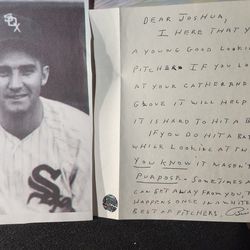 SOX
SOX
DEAR JOSHUA,
I HERE THAT Y
A YOUNG GOOD LOOKI
PITCHER IF YOU LO
AT YOUR CATHER AND
GLOVE IT WILL HELP
IT IS HARD TO HIT A B
IF YOU DO HIT A BAT
WHILE LOOKING AT TH
YOU KNOW IT WASEN'T
PURPOSE. SOMETIMES A
CAN GET AWAY FROM YOU, T
HAPPENS ONCE IN A WHILE
BEST OF PITCHERS.